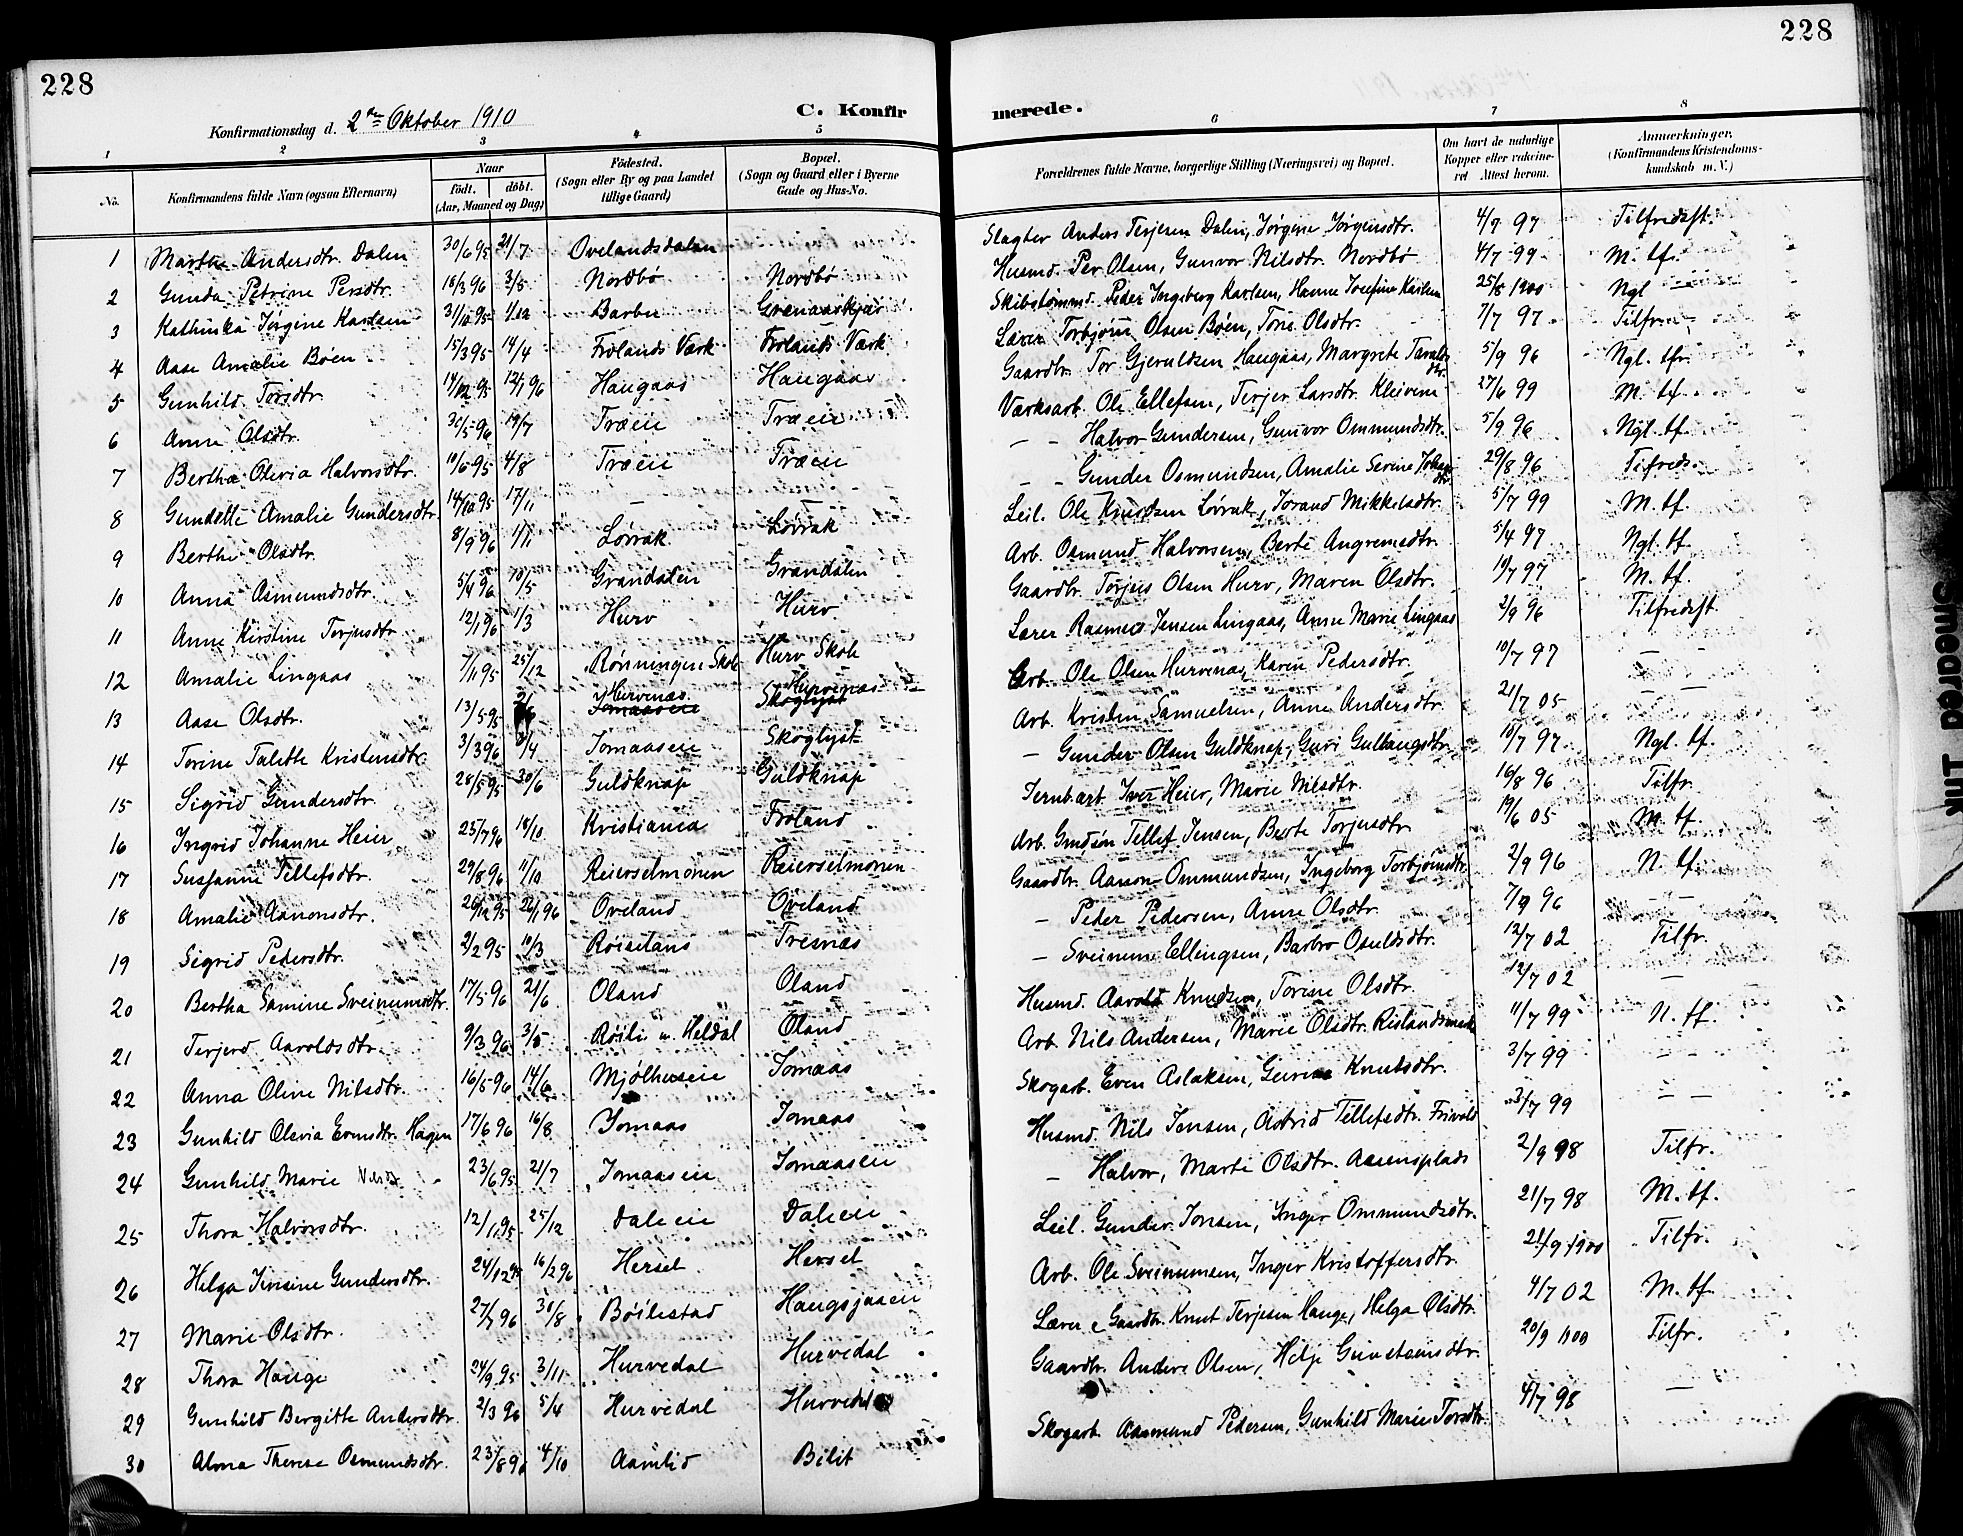 228
228
Konfirmationsdag d. 2den Oktober 1910
C. Konfirmerede.
1 2 3 4 5 6 7 8
No. Konfirmandens fulde Navn (ogsaa Efternavn) Naar født. døbt. (Aar, Maaned og Dag) Fødested. (Sogn eller By og paa Landet tillige Gaard) Bopæl. (Sogn og Gaard eller i Byerne Gade og Hus-No. Forældrenes fulde Navne, borgerlige Stilling (Næringsvei) og Bopæl. Om havt de naturlige Kopper eller vakcineret Attest herom. Anmærkninger. (Konfirmandens Kristendomskundskab m. V.)
1 Marthe Andersdtr. Dalen 30/6 95 21/7 Ovelandsdalen Slagter Anders Terjesen Dalen, Jørgine Jørgensdtr. 4/9 97 Tilfredsst.
2 Gunda Petrine Persdtr. 18/3 96 3/5 Nordbø Nordbø Husmd. Per Olsen, Gunvor Nilsdtr. Nordbø 4/7 99 M. tf.
3 Kathinka Jørgine Karlsen 31/10 95 1/12 Barbu Skibstømmd. Peder Ingeberg Karlsen, Hanne Josefine Karlsen 25/8 1900 Ngl
4 Aase Amalie Bøen 15/3 95 14/4 Frolands Værk Frolands Værk Lærer Torbjørn Olsen Bøen, Tone Olsdtr. 7/7 97 Tilfr.
5 Gunhild Torsdtr. 14/12 95 12/1 96 Haugaas Haugaas Gaardbr. Tor Gjeruldsen Haugaas, Margrete Taraldsdtr. 5/9 96 Ngl. tfr.
6 Anne Olsdtr. 30/5 96 19/7 Træen Træen Værksarb. Ole Ellefsen, Terjer Larsdtr. Kleivene 27/6 99 M. tf.
7 Bertha Olevia Halvorsdtr. 10/6 95 4/8 Træen Træen — — Halvor Gundersen, Gunvor Ommundsdtr. 5/9 96 Ngl. tf.
8 Gundelle Amalie Gundersdtr. 14/10 95 17/11 — — — — Gunder Osmundsen, Amalie Serine 29/8 96 Tilfreds.
9 Berthe Olsdtr. 8/9 96 1/11 Løvrak Løvrak Leil. Ole Knudsen Løvrak, Jorand Mikkelsdtr. 5/7 99 M. tf.
10 Anna Osmundsdtr. 5/4 96 10/5 Grandalen Grandalen Arb. Osmund Halvorsen, Berte Angremsdtr. 5/4 97 Ngl. tf.
11 Anne Kirstine Terjusdtr. 12/1 96 1/3 Hurv Hurv Gaardbr. Torjus Olsen Hurv, Maren Olsdtr. 19/7 97 M. tf.
12 Amalie Lingaas 7/11 95 25/12 Rønningen Skole Hurv Skole Lærer Rasmus Jensen Lingaas, Anne Marie Lingaas 2/9 96 Tilfredsst
13 Aase Olsdtr. 13/5 95 Hurvenæs Hurvenæs Arb. Ole Olsen Hurvenæs, Karen Pedersdtr. 10/7 97 — —
14 Torine Talette Kristensdtr. 3/3 96 /4 Jomaaseie Skoglyst Arb. Kristen Samuelsen, Anne Andersdtr. 21/7 05 — —
15 Sigrid Gundersdtr. 28/5 95 30/6 Guldknap Guldknap — Gunder Olsen Guldknap, Guri Gullaugsdtr. 10/7 97 Ngl. tf.
16 Ingrid Johanne Heier 25/7 96 18/10 Kristiania Froland Jernb.arb. Iver Heier, Marie Nilsdtr. 16/8 96 Tilfr.
17 Susjanne Tellefsdtr. 29/8 96 11/10 Reierselmoren Reierselmoren Arb. Gmdsøn Tellef Jensen, Berte Torjusdtr. 19/6 05 M. tf.
18 Amalie Aanonsdtr. 26/12 95 26/1 96 Oveland Oveland Gaardbr. Aanon Ommundsen, Ingeborg Torbjørnsdtr. 2/9 96 N. tf.
19 Sigrid Pedersdtr. 2/2 95 10/3 Røiselans Tresnæs — Peder Pedersen, Anne Olsdtr. 7/9 96 — —
20 Bertha Samine Sveinumsdtr. 17/5 96 21/6 Oland Oland — Sveinun Ellingsen, Barbro Osuldsdtr. 12/7 02 Tilfr.
21 Terjerd Aavoldsdtr. 9/3 96 3/5 Røili u. Heldal Oland Husmd. Aavold Knudsen, Torine Olsdtr. 12/7 02 —
22 Anna Oline Nilsdtr. 16/5 96 14/6 Mjølhuseie Jomaas Arb. Nils Andersen, Marie Olsdtr. 11/7 99 N. tf.
23 Gunhild Olevia Evensdtr. Hagen 17/6 96 16/8 Jomaas Jomaas Skogarb. Even Aslaksen, Knutsdtr. 3/7 99 — —
24 Gunhild Marie Nilsdtr 23/6 95 21/7 Jomaaseie Jomaaseie Husmd. Nils Jensen, Astrid Tellefsdtr. Frivold 3/7 99 — —
25 Thora Halvorsdtr. 12/11 95 25/12 Daleeie Daleeie — Halvor, Marte Olsdtr. Aasensplads 2/9 98 Tilfr.
26 Helga Jensine Gundersdtr. 24/12 95 16/2 96 Hersel Hersel Leil. Gunder Jonsen, Inger Ommundsdtr. 21/7 98 M. tf.
27 Marie Olsdtr. 27/7 96 30/8 Bøilestad Haugsjaaeie Arb. Ole Sveinumsen, Inger Kristoffersdtr. 21/9 1900 Tilfr.
28 Thora Hauge 24/9 95 3/11 Hurvedal Hurvedal Lærer & Gaardbr. Knut Terjesen Hauge, Helga Olsdtr. 4/7 02 M. tf.
29 Gunhild Bergitte Andersdtr. 2/3 96 5/4 Hurvedal Hurvedal Gaardbr. Anders Olsen, Helje Gunsteinsdtr. 20/9 1900 Tilfr.
30 Alma Therese Osmundsdtr. 23/8 96 4/10 Aamlid Bilit Skogarb. Aasmund Pedersen, Gunhild Marie Torsdtr. 4/7 98 —
Smeared Ink